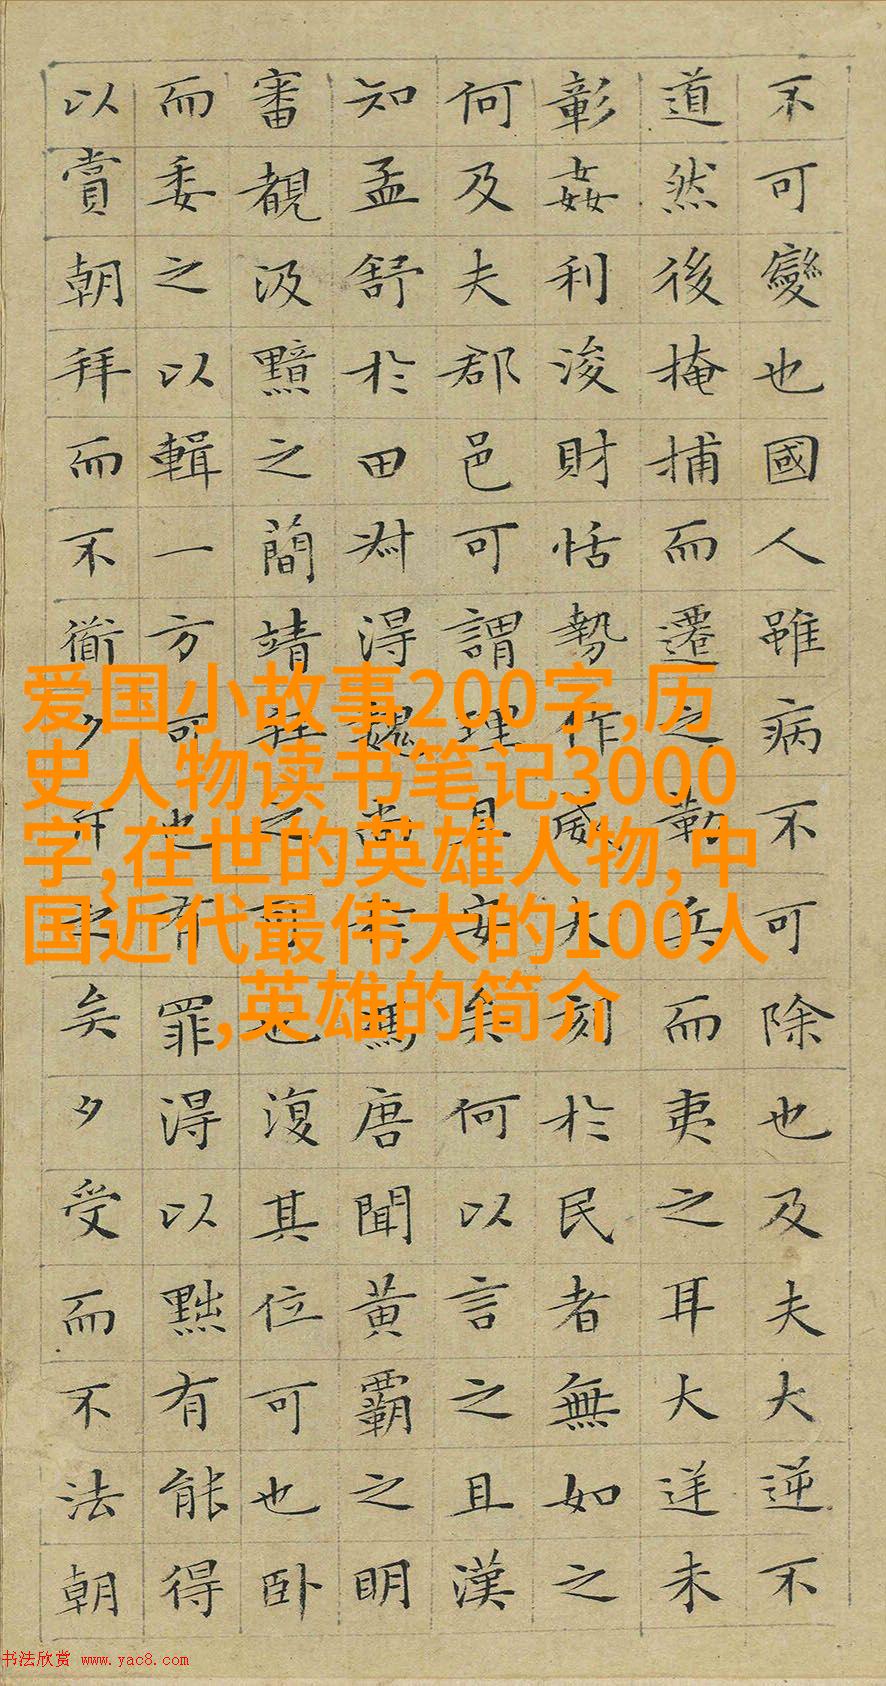 不可變也國人雖病不可除也及夫大逆不
道然後掩捕而遷之勒兵而夷之耳大逆未
彰姦利浚財恬勢作威大刻於民者無如之
何及夫郡邑可謂理且安矣何以言之且漢
知孟舒於田叔得魏尚於馮唐聞黃霸之明
審覩汲黯之簡靖拜之可也復其位可也卧
而委之以輯一方可也有罪得以黜有能得
以賞朝拜而不衜夕斥之矣夕受而不法朝
爱国小故事200字,历
史人物读书笔记3000
字,在世的英雄人物,中
国近代最伟大的100人
,英雄的简介
书法欣赏 www.yac8.com